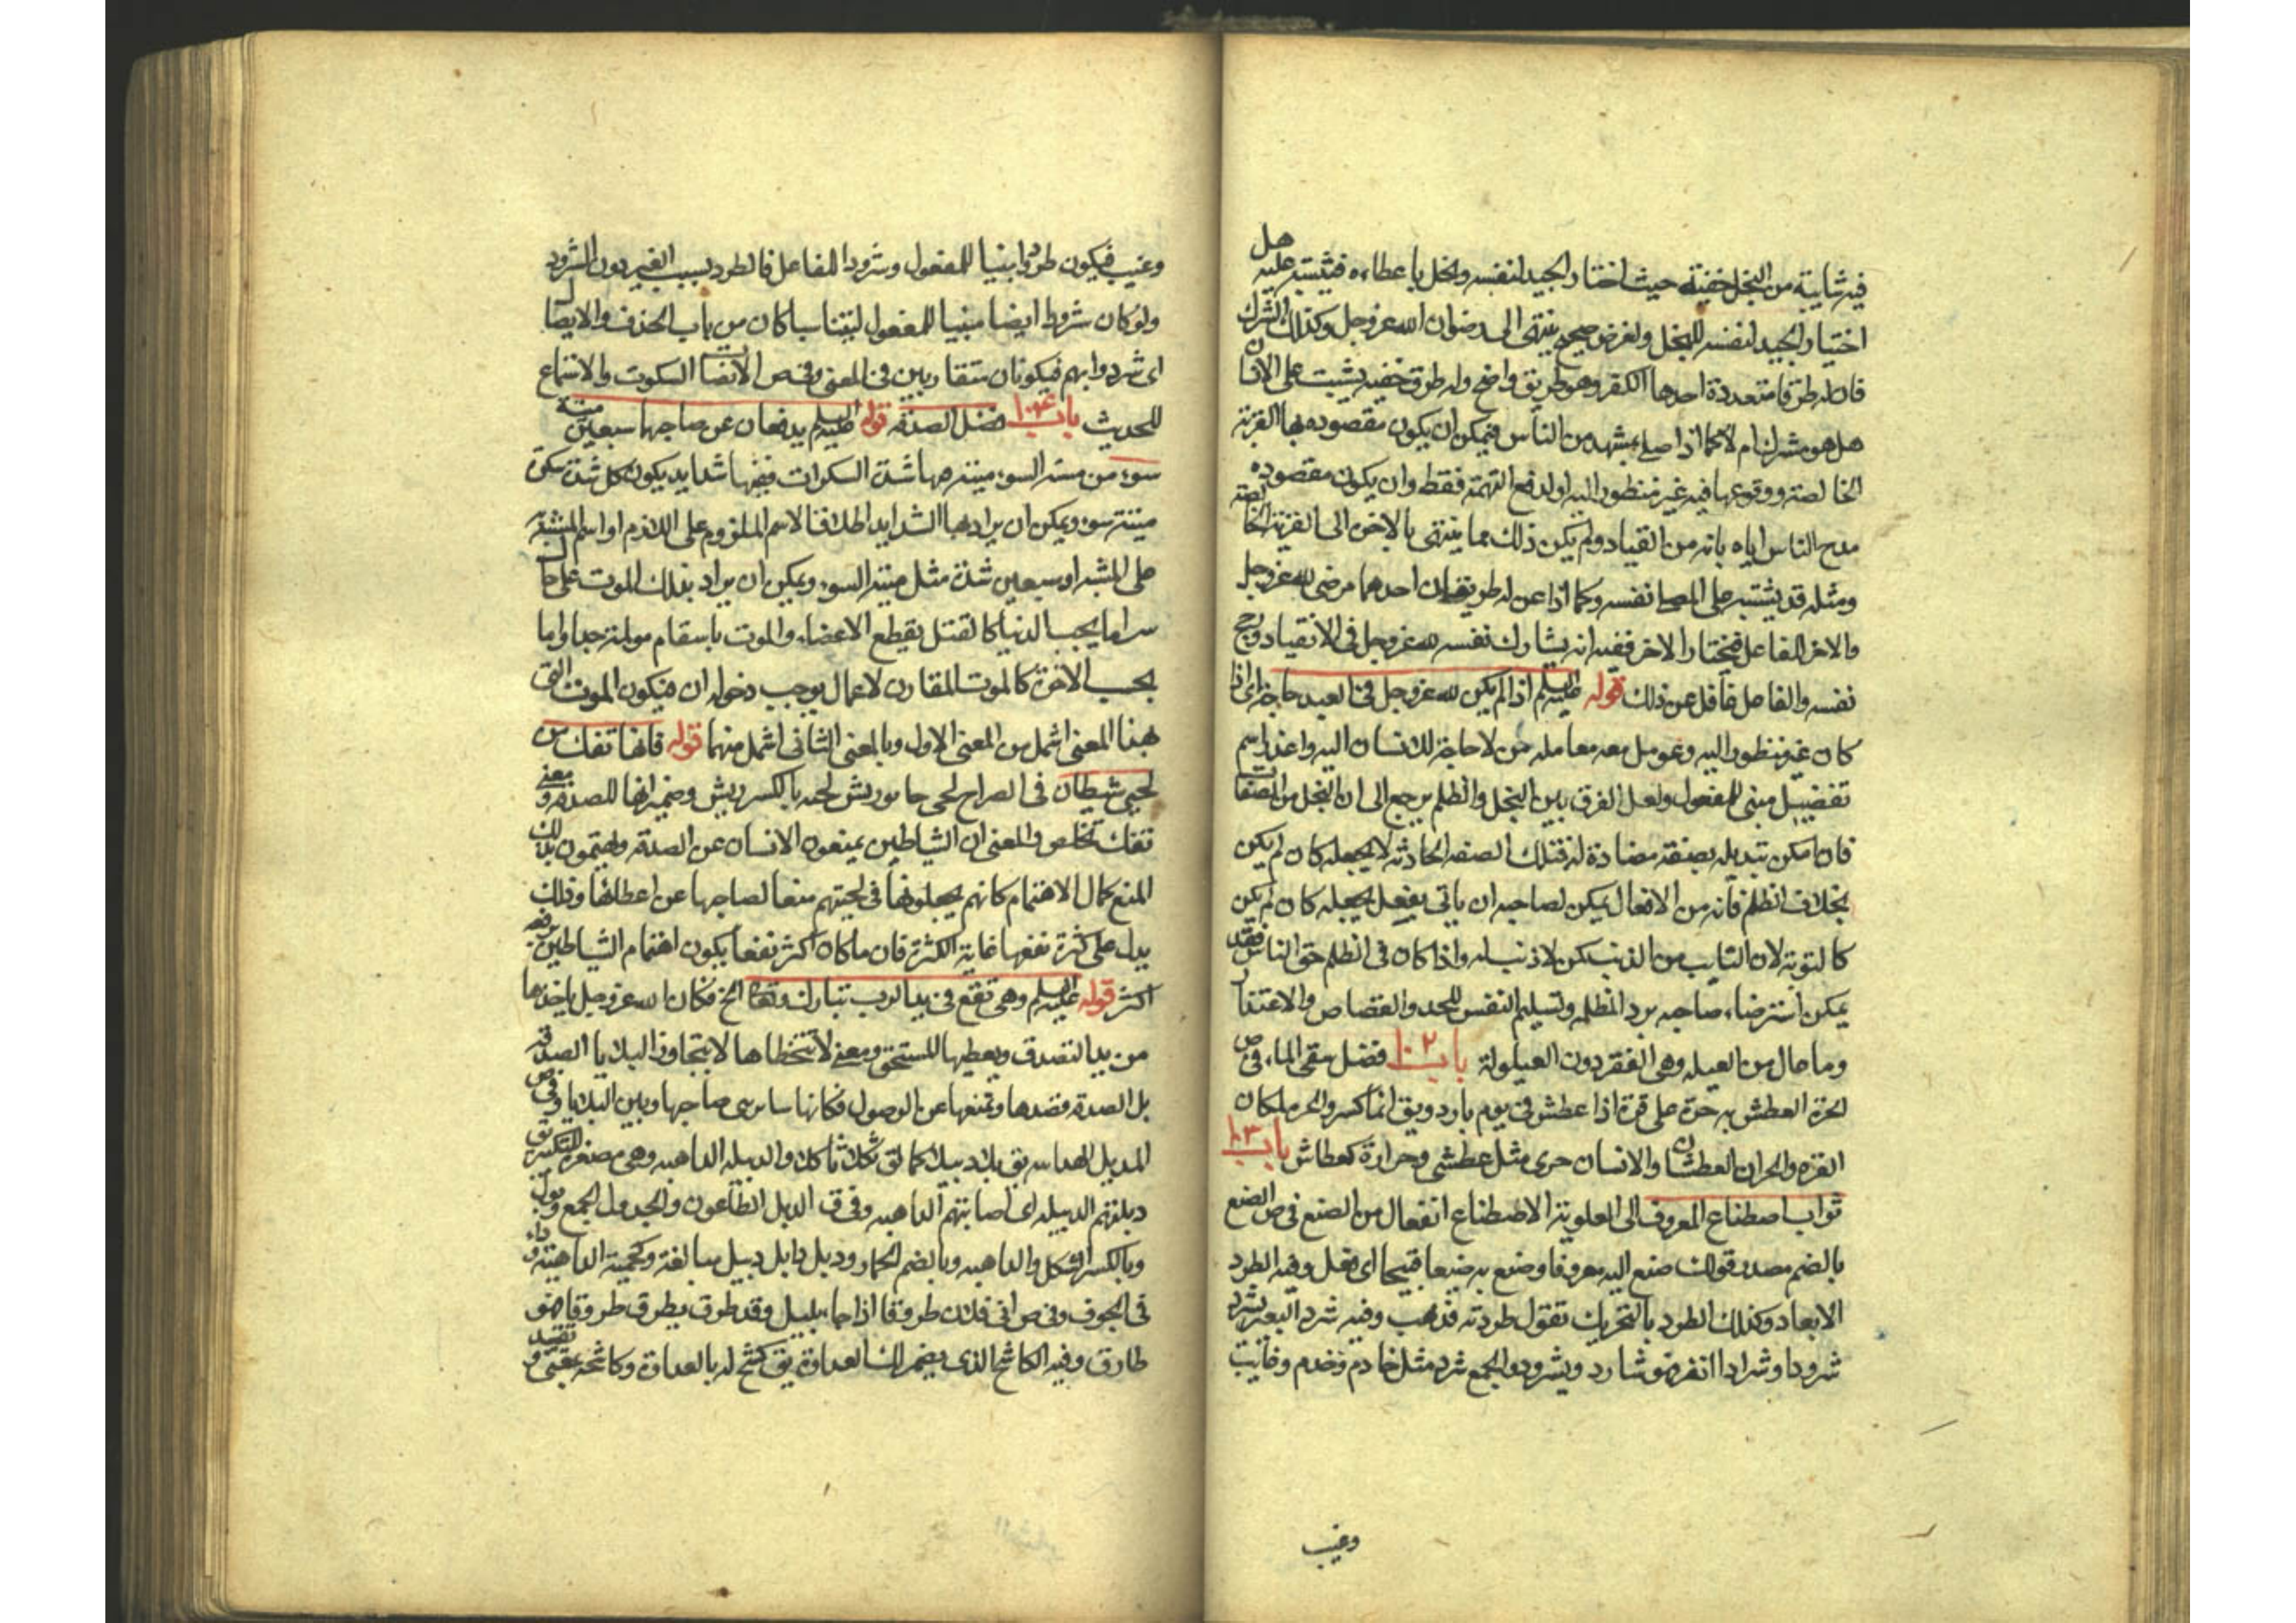 فيه شايبة من البخل خفية حيث اختار الجيد لنفسه وبخل باعطاءه فيشتبه عليه هل
اختيار الجيد لنفسه للبخل ولغرض صحيح ينتهى الى رضوان الله عز وجل وكذلك الشرك
فان له طرقا متعددة احدها الكفر وهو طريق واضح وله طرق خفيه يشتبه على الانسان
هل هو مشرك ام لا كما اذا صلى بمشهد من الناس فيمكن ان يكون مقصوده بها القربة
الخالصة ووقوعها فيه غير منظور اليه او لدفع التهمة فقط وان يكون مقصوده
مدح الناس اياه بانه من القياد ولم يكن ذلك مما ينتهى بالاخرة الى القربة الخالصة
ومثله قد يشتبه على المصلى نفسه وكما اذا عن له طريقان احدهما مرضى لله عز وجل
والاخر للفاعل فيختار الاخر ففيه انه يشارك نفسه لله عز وجل فى الانقياد ورجح
نفسه والفاعل غافل عن ذلك قوله عليه السلم اذا لم يكن لله عز وجل فى العبد حاجة اى اذا
كان غير منظور اليه وعومل معه معاملة من لا حاجة للانسان اليه واعذر اسم
تفضيل مبنى للمفعول ولعل الفرق بين البخل والظلم يرجع الى ان البخل من الصفات
فان امكن تبديله بصفة مضادة له فتلك الصفه الحادثه لا يجعله كان لم يكن
بخلاف الظلم فانه من الافعال يمكن لصاحبه ان ياتى بفعل يجعله كان لم يكن
كالتوبة لان التايب من الذنب كمن لا ذنب له واذا كان فى الظلم حق الناس فقد
يمكن استرضاء صاحبه برد المظلمه وتسليم النفس للحد والقصاص والاعتذار
وما عال من العيله وهى الفقر دون العيلولة باب ١٠٢ فضل سقى الماء فى ص
الحرة العطش به حرة على قرة اذا عطش فى يوم بارد ويق انما كسر والحر لمكان
القره والحران العطشان والانسان حرى مثل عطشى وحرارة كعطاش باب ١٠٣
ثواب اصطناع المعروف الى العلوية الاصطناع افتعال من الصنع فى ص الصنع
بالضم مصدر قولك صنع اليه معروفا وصنع به صنيعا قبيحا اى فعل وفيه الطرد
الابعاد وكذلك الطرد بالتحريك تقول طردته فذهب وفيه شرد البعير يشرد
شرودا وشرادا انفر فهو شارد ويشرود والجمع شرد مثل خادم وخدم وغايب
وغيب
وغيب فيكون طردوا بنيا للمفعول وشرودا للفاعل فالطرد بسبب الغير دون الشرود
ولو كان شردوا ايضا مبنيا للمفعول ليتناسبا كان من باب الحذف والايصال
اى شردوا بهم فيكونان متقاربين فى المعنى وفى ص الانصات السكوت والاستماع
للحديث باب ١٠٤ فضل الصدقة قوله عليه السلم يدفعان عن صاحبها سبعين ميتة
سوء من ميته السوء ميتة معها شدة السكرات ففيها شدايد يكون كل شدة سكرة
ميتة سوء ويمكن ان يراد بها الشدايد اطلاقا لاسم الملزوم على اللازم او اسم المشبه
على المشبه او سبعين شدة مثل ميتة السوء ويمكن ان يراد بذلك الموت على حال
سوء اما بحسب الدنيا كالقتل بقطع الاعضاء والموت باسقام مولمة جدا واما
بحسب الاخرة كالموت المقارن لاعمال يوجب دخوله النار فيكون الموت التى
بهذا المعنى اشمل من المعنى الاول وبالمعنى الثانى اشمل منهما قوله فانها تفك من
لحيى شيطان فى الصراح لحى جاى وريش لحيه بالكسر ريش وضمير انها للصدقة ومعنى
تفك تخلص والمعنى ان الشياطين يمنعون الانسان عن الصدقه ويهتمون بذلك
المنع كمال الاهتمام كانهم يجعلونها فى لحيتهم منعا لصاحبها عن اعطائها وذلك
يدل على كثرة نفعها غاية الكثرة فان ما كان اكثر نفعا يكون اهتمام الشياطين برفعه
اكثر قوله عليه السلم وهى تقع فى يد الرب تبارك وتعالى الخ فكان الله عز وجل ياخذها
من يد المتصدق ويعطيها للمستحق ومعنى لا تتخطاها لا يتجاوز البلايا الصدقة
بل الصدقه تصدها وتمنعها عن الوصول فكانها سائر بين صاحبها وبين البلايا وفى ص
الدبيل الداهيه يق دبلا دبيلا كما يق ثكلا ثاكلا والدبيله الداهيه وهى مصغرة للتكبير يق
دبلتهم الدبيله اى اصابتهم الداهيه وفى ق الدبل الطاعون والجدول الجمع دبول
وبالكسر الثكل والداهيه وبالضم الحمار ودبل دابل دبيل مبالغة وكجهينة الداهية وداء
فى الجوف وفى ص اتى فلان طروقا اذا جاء بليل وقد طرق يطرق طروقا فهو
طارق وفيه الكاشح الذى يضمر لك العداوة يق كشح له بالعداوة وكاشحه بمعنى و